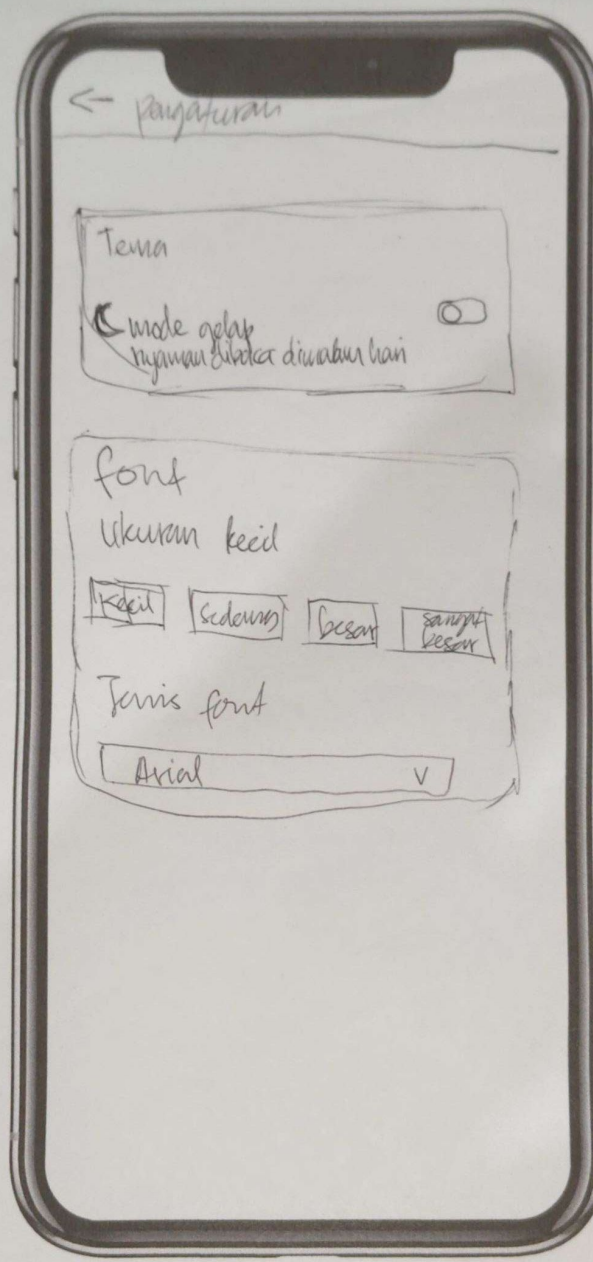 ← pengaturan
Tema
mode gelap
nyaman dibuka dimalam hari
font
Ukuran kecil
Kecil sedang besar sangat besar
Jenis font
Arial v